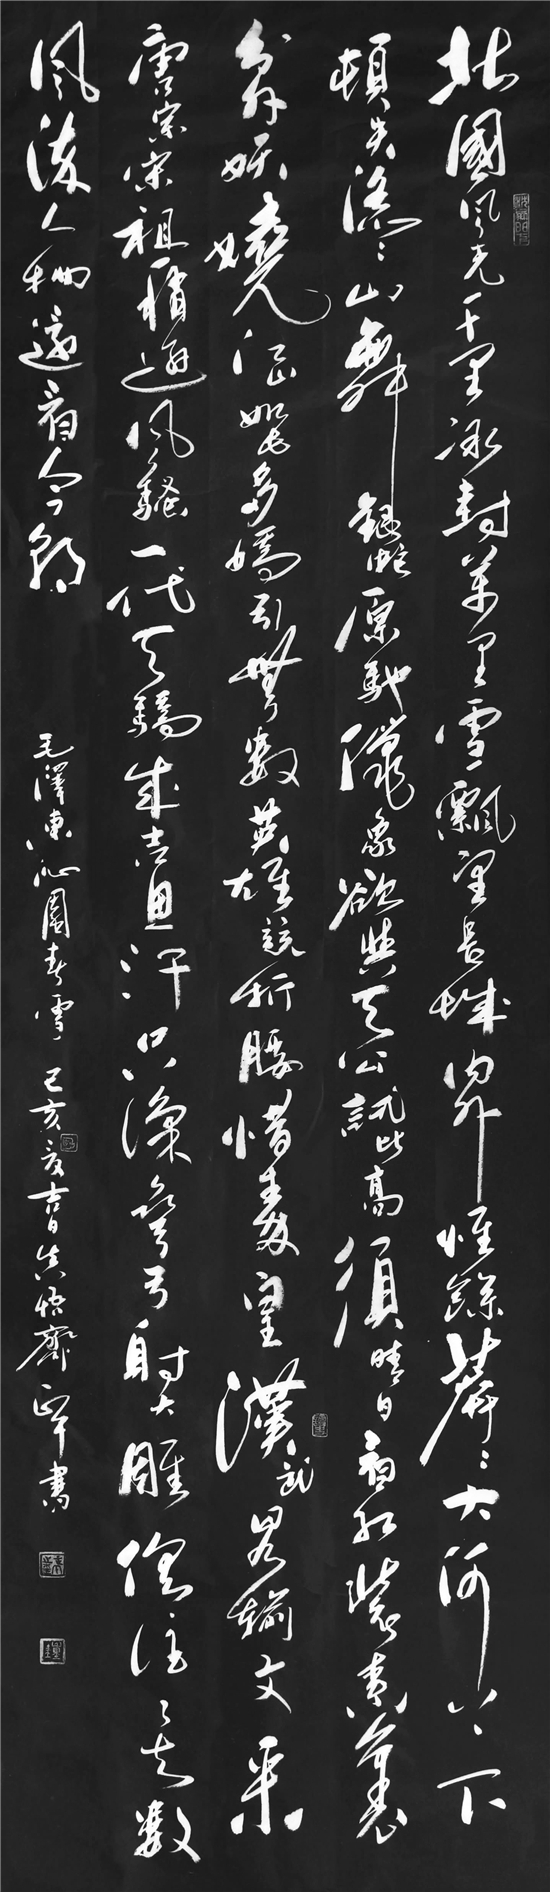 北國風光千里冰封萬里雪飄望長城內外惟餘莽〻大河上下
頓失滔〻山舞銀蛇原馳蠟象欲與天公試比高須晴日看紅裝素裹
分外妖嬈江山如此多嬌引無數英雄競折腰惜秦皇漢武略輸文采
唐宗宋祖稍遜風騷一代天驕成吉思汗只識彎弓射大雕俱往矣數
風流人物還看今朝
毛澤東沁園春雪 己亥夏 悟齋 書